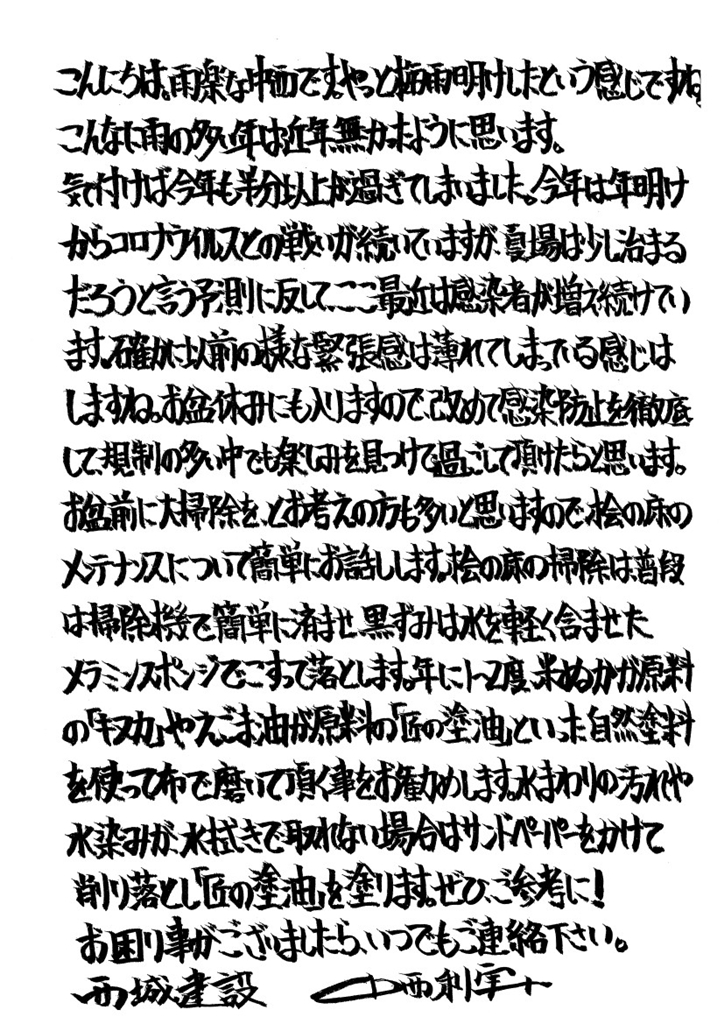 こんにちは。雨楽な中西です。やっと梅雨明けしたという感じですね
こんなに雨の多い年は近年無かったように思います。
気付けば今年も半分以上が過ぎてしまいました。今年は年明け
からコロナウイルスとの戦いが続いていますが、夏場は少し治まる
だろうと言う予測に反して、ここ最近は感染者が増え続けてい
ます。確かに以前の様な緊張感は薄れてしまっている感じは
しますね。お盆休みにも入りますので、改めて感染防止を徹底
して、規制の多い中でも楽しみを見つけて過ごして頂けたらと思います。
お盆前に大掃除を、とお考えの方も多いと思いますので、桧の床の
メンテナンスについて簡単にお話しします。桧の床の掃除は、普段
は掃除機で簡単に済ませ、黒ずみは水を軽く含ませた
メラミンスポンジでこすって落とします。年に1〜2度、米ぬかが原料
の「キヌカ」やえごま油が原料の「匠の塗油」といった自然塗料
を使って布で磨いて頂く事をお勧めします。水まわりの汚れや
水染みが、水拭きで取れない場合はサンドペーパーをかけて
削り落とし「匠の塗油」を塗ります。ぜひ、ご参考に!
お困り事がございましたら、いつでもご連絡下さい。
西城建設 中西利幸